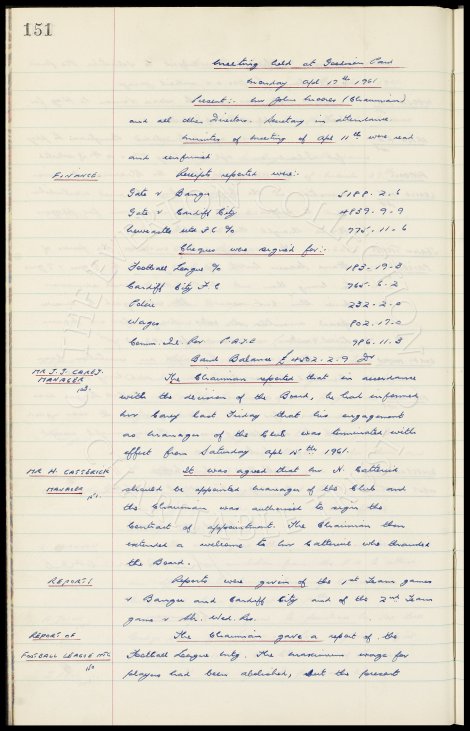 151
Meeting held at Goodison Park
Monday Apl 17th 1961
Present:- Mr John Moores (Chairman)
and all other Directors. Secretary in attendance.
Minutes of Meeting of Apl 11th were read
and confirmed
FINANCE Receipts reported were:-
Gate v Bangor 5188 - 2 - 6
Gate v Cardiff City 4839 - 9 - 9
Newcastle Utd F.C. 775 - 11 - 6
Cheques were signed for:-
Football League 183 - 19 - 3
Cardiff City F.C 765 - 6 - 2
Police 232 - 2 - 0
Wages 802 - 17 - 0
Comm. Inl. Rev P.A.Y.E 986 - 11 - 3
Bank Balance £ 4502 - 2 - 9 Dr
MR J. J. CAREY.
MANAGER
The Chairman reported that in accordance
with the decision of the Board, he had informed
Mr Carey last Friday that his engagement
as Manager of the Club was terminated with
effect from Saturday Apl 15th 1961.
MR H. CATTERICK
MANAGER
It was agreed that Mr H. Catterick
should be appointed Manager of the Club and
the Chairman was authorised to sign the
Contract of appointment. The Chairman then
extended a welcome to Mr Catterick who thanked
the Board.
REPORTS Reports were given of the 1st Team games
v Bangor and Cardiff City and of the 2nd Team
game v Sh. Wed. Res.
REPORT OF
FOOTBALL LEAGUE MTG
The Chairman gave a report of the
Football League mtg. The maximum wage for
players had been abolished, but the present